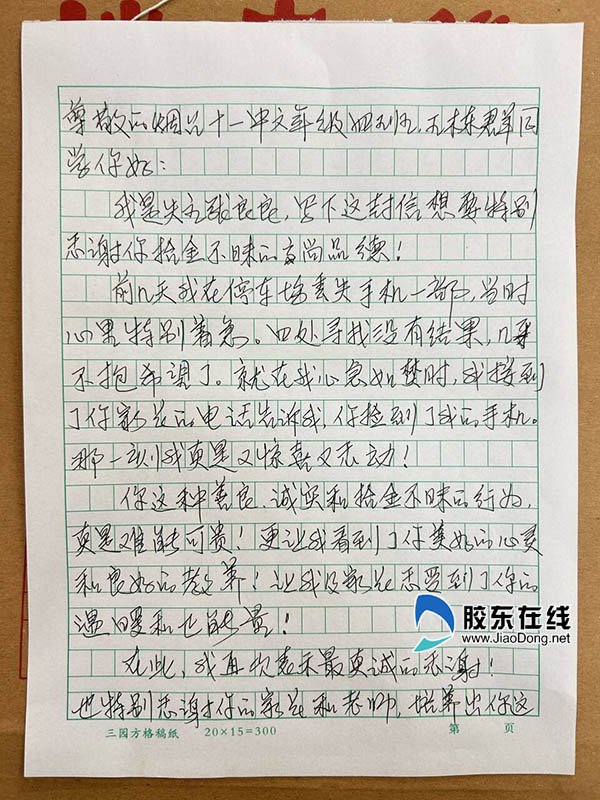 尊敬的烟台十一中六年级四班，王栋君羊同
学你好：
我是失主张良良，写下这封信想要特别
感谢你拾金不昧的高尚品德！
前几天我在停车场丢失手机一部，当时
心里特别着急。四处寻找没有结果，几乎
不抱希望了。就在我心急如焚时，我接到
了你家长的电话告诉我，你捡到了我的手机。
那一刻我真是又惊喜又感动！
你这种善良、诚实和拾金不昧的行为，
真是难能可贵！更让我看到了你美好的心灵
和良好的教养！让我及家长感受到了你的
温暖和正能量！
在此，我再次表示最真诚的感谢！
也特别感谢你的家长和老师，培养出你这
三园方格稿纸 20×15=300 第 页
胶东在线
www.JiaoDong.net